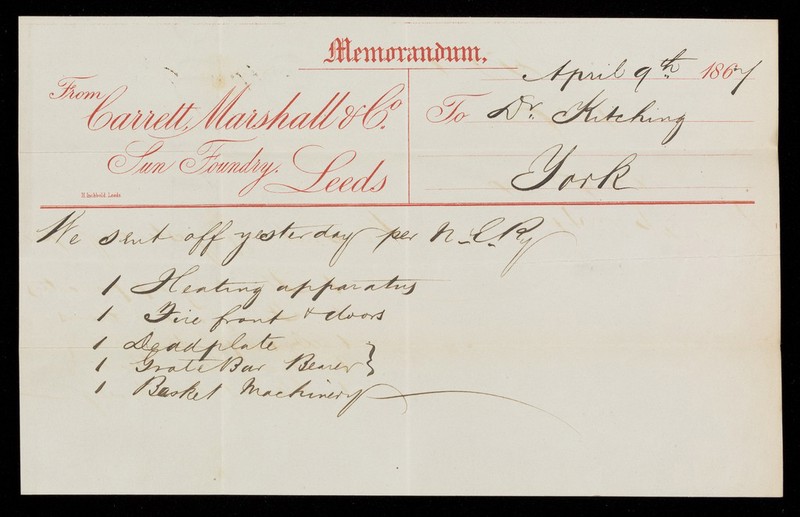 Memorandum.
April 9th 1867
From
Carrett, Marshall & Co.
To Dr. Kitching
Sun Foundry. Leeds
York
We sent off yesterday per N.E.Ry
1 Heating apparatus
1 Fire front & doors
1 Deadplate
1 Grate Bar Bearer
1 Basket Machinery